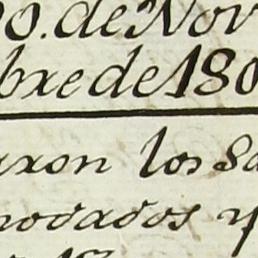 0. de Nov
bre de 180
aron los Sa
modados y